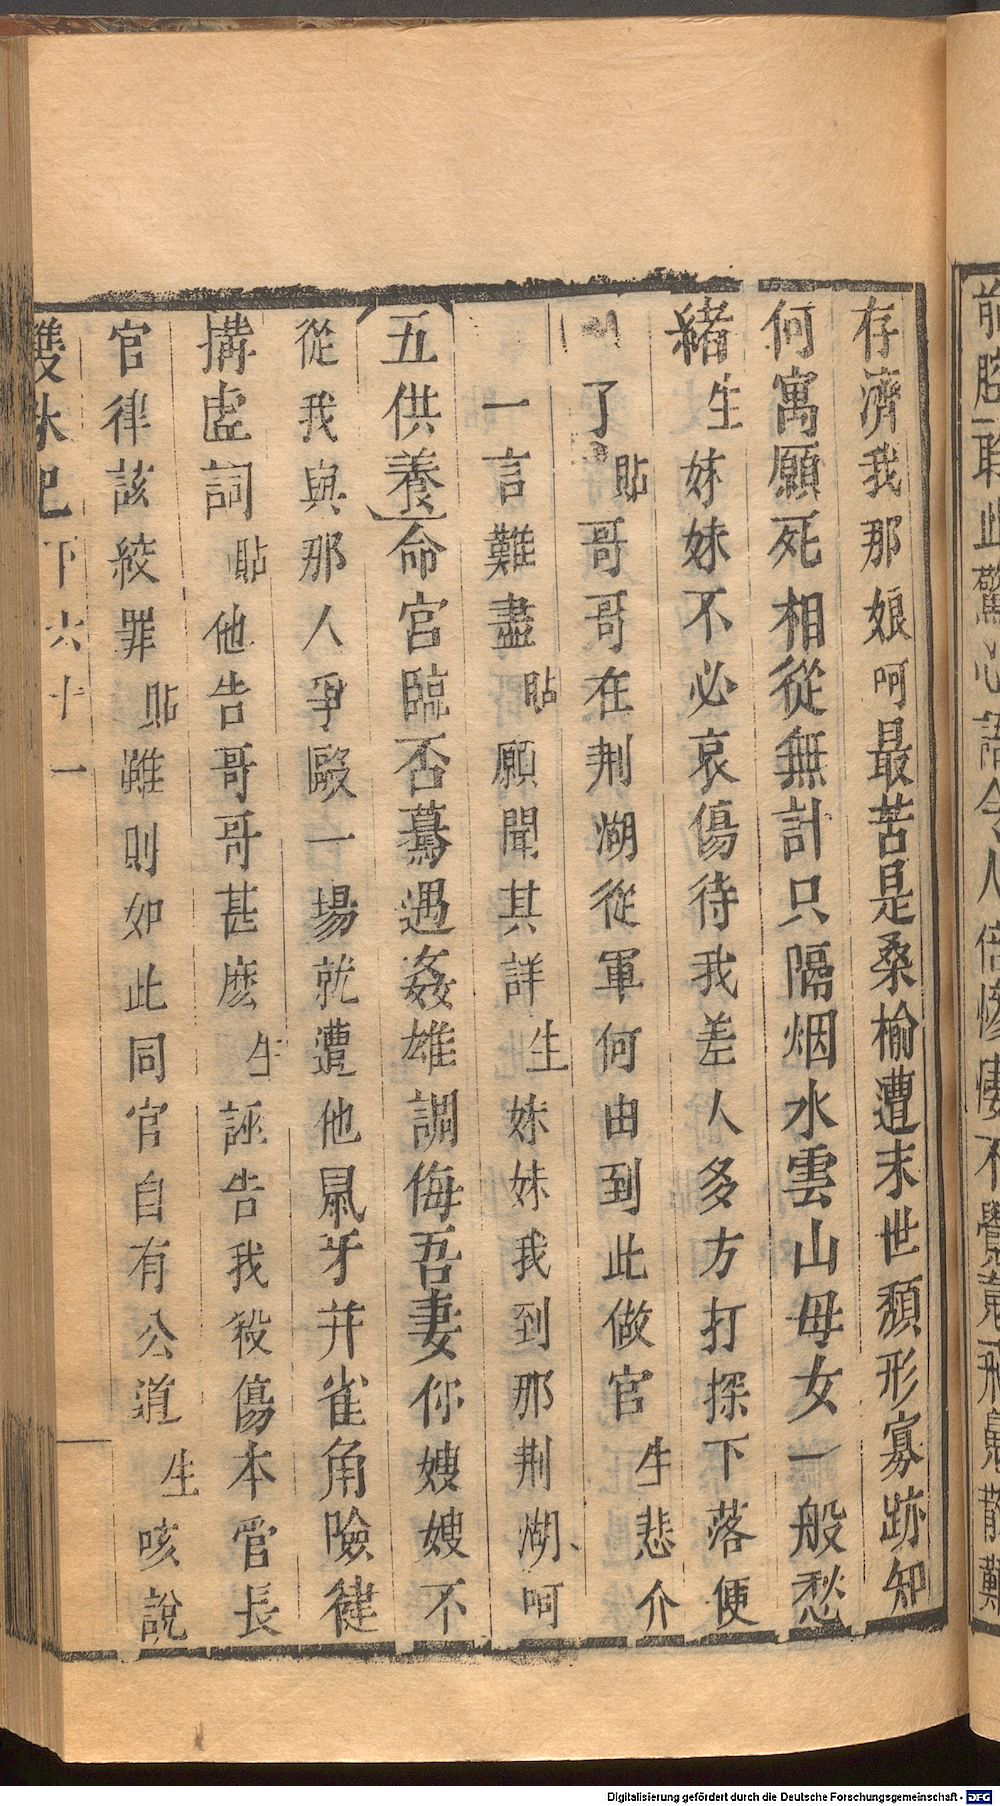 前腔聽此驚心語令人倍慘悽不覺
存濟我那娘呵最苦是桑榆遭末世頹形寡跡知
何寓願死相從無計只隔烟水雲山母女一般愁
緒生妹妹不必哀傷待我差人多方打探下落便
了貼哥哥在荆湖從軍何由到此做官生悲介
一言難盡貼願聞其詳生妹妹我到那荆湖呵
五供養命官臨否驀遇姦雄調侮吾妻你嫂嫂不
從我與那人爭毆一場就遭他鼠牙并雀角險健
搆虗詞貼他告哥哥甚麽生誣告我殺傷本官長
官律該絞罪貼雖則如此同官自有公道生咳說
雙珠記下六十一
Digitalisierung gefördert durch die Deutsche Forschungsgemeinschaft - DFG